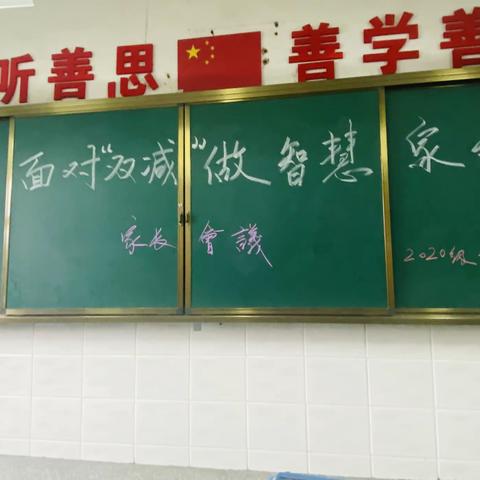 听善思 善学善
面对"双减"做智慧 家
家长 會議
2020级